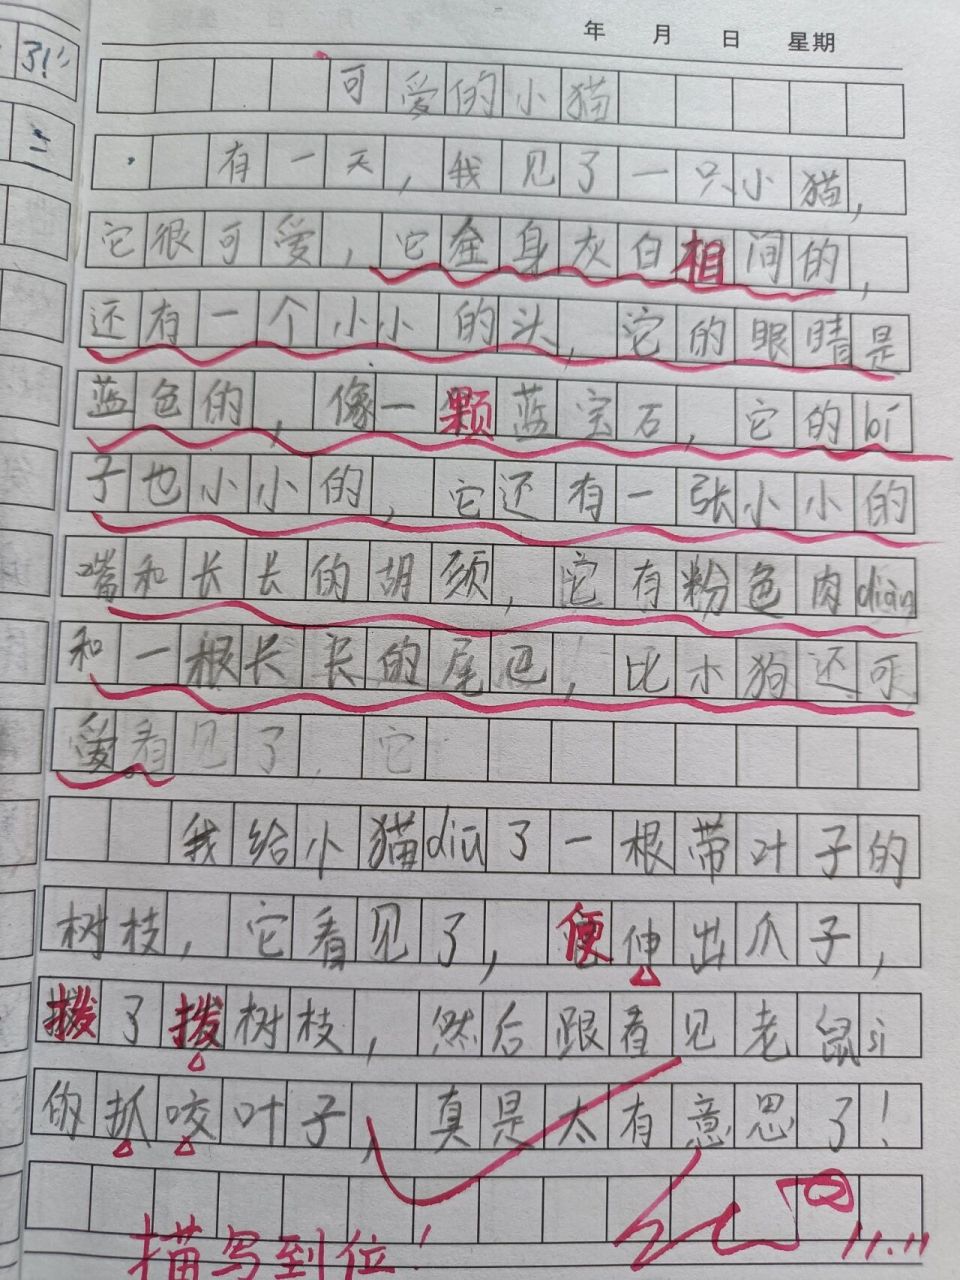 年 月 日 星期
了!"
可爱的小猫
有一天,我见了一只小猫,
它很可爱,它全身灰白相间的,
还有一个小小的头,它的眼睛是
蓝色的,像一颗蓝宝石,它的bí
子也小小的,它还有一张小小的
嘴和长长的胡须,它有粉色肉diàn
和一根长长的尾巴,比小狗还可
爱看见了,它
我给小猫diū了一根带叶子的
树枝,它看见了,便伸出爪子,
拨了拨树枝,然后跟看见老鼠sì
的抓咬叶子,真是太有意思了!
描写到位!
11.11